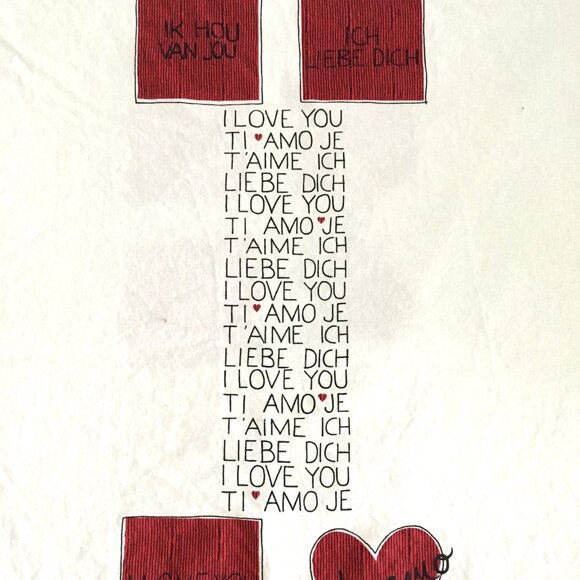 IK HOU
VAN JOU
ICH
LIEBE DICH
I LOVE YOU
TI AMO JE
T'AIME ICH
LIEBE DICH
I LOVE YOU
TI AMO JE
T'AIME ICH
LIEBE DICH
I LOVE YOU
TI AMO JE
T'AIME ICH
LIEBE DICH
I LOVE YOU
TI AMO JE
T'AIME ICH
LIEBE DICH
I LOVE YOU
TI AMO JE